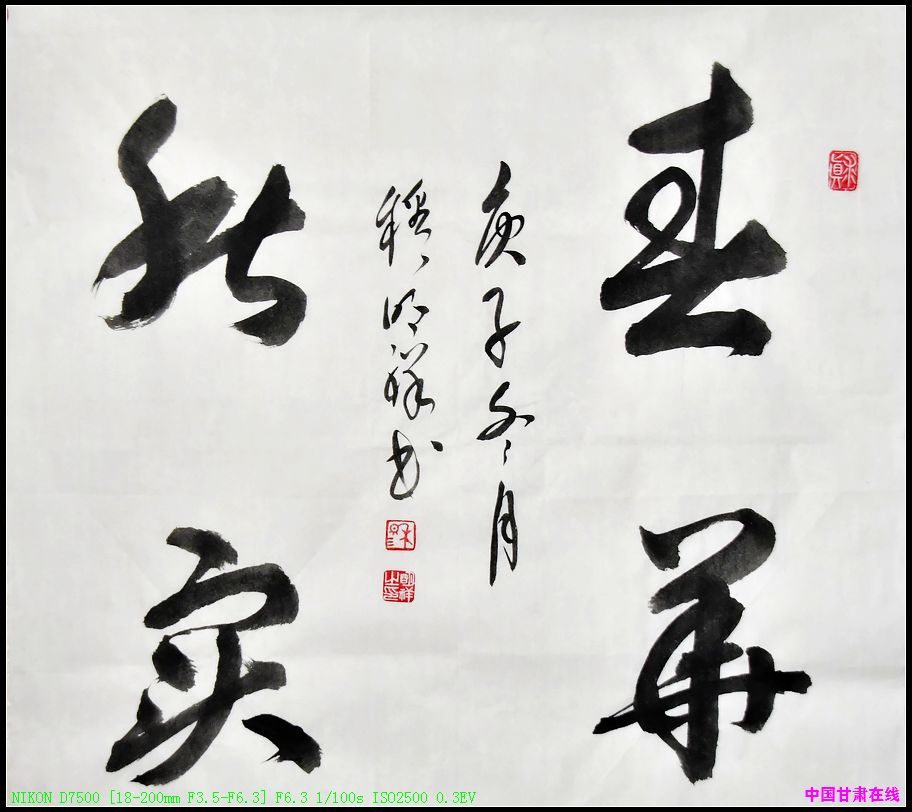 春华
秋实
庚子冬月
穆明祥书
NIKON D7500 [18-200mm F3.5-F6.3] F6.3 1/100s ISO2500 0.3EV
中国甘肃在线